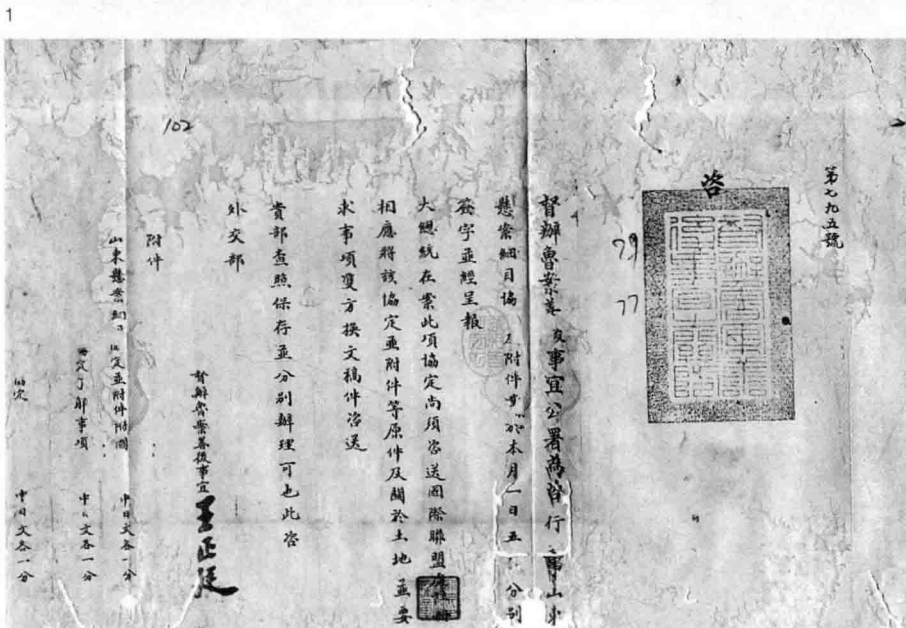 1
第七九五號
咨
79
77
督辦魯案善後事宜公署爲咨行事山東
懸案細目協 附件 於本月一日五 分別
簽字並經呈報
大總統在案此項協定尚須咨送国際聯盟
相應將該協定並附件等原件及關於土地 並要
求事項雙方換文稿件咨送
貴部查照保存並分別辦理可也此咨
外交部
督辦魯案善後事宜王正廷
102
附件
山東懸案細目協定並附件附圖 中日文各一分
協定了解事項 中日文各一分
協定 中日文各一分